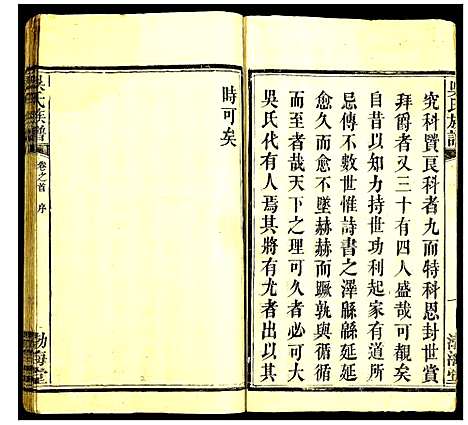 吳氏族譜
究科貢良科者九而特科恩封世賞
拜爵者又三十有四人盛哉可觀矣
自昔以知力持世功利起家有道所
忌傳不數世惟詩書之澤緜緜延延
愈久而不墜赫赫而蹶孰與循循
而至者哉天下之理可久者必可大
吳氏代有人焉其將有光大出以其
渤海堂
時可矣
吳氏族譜
卷之首 序
渤海堂